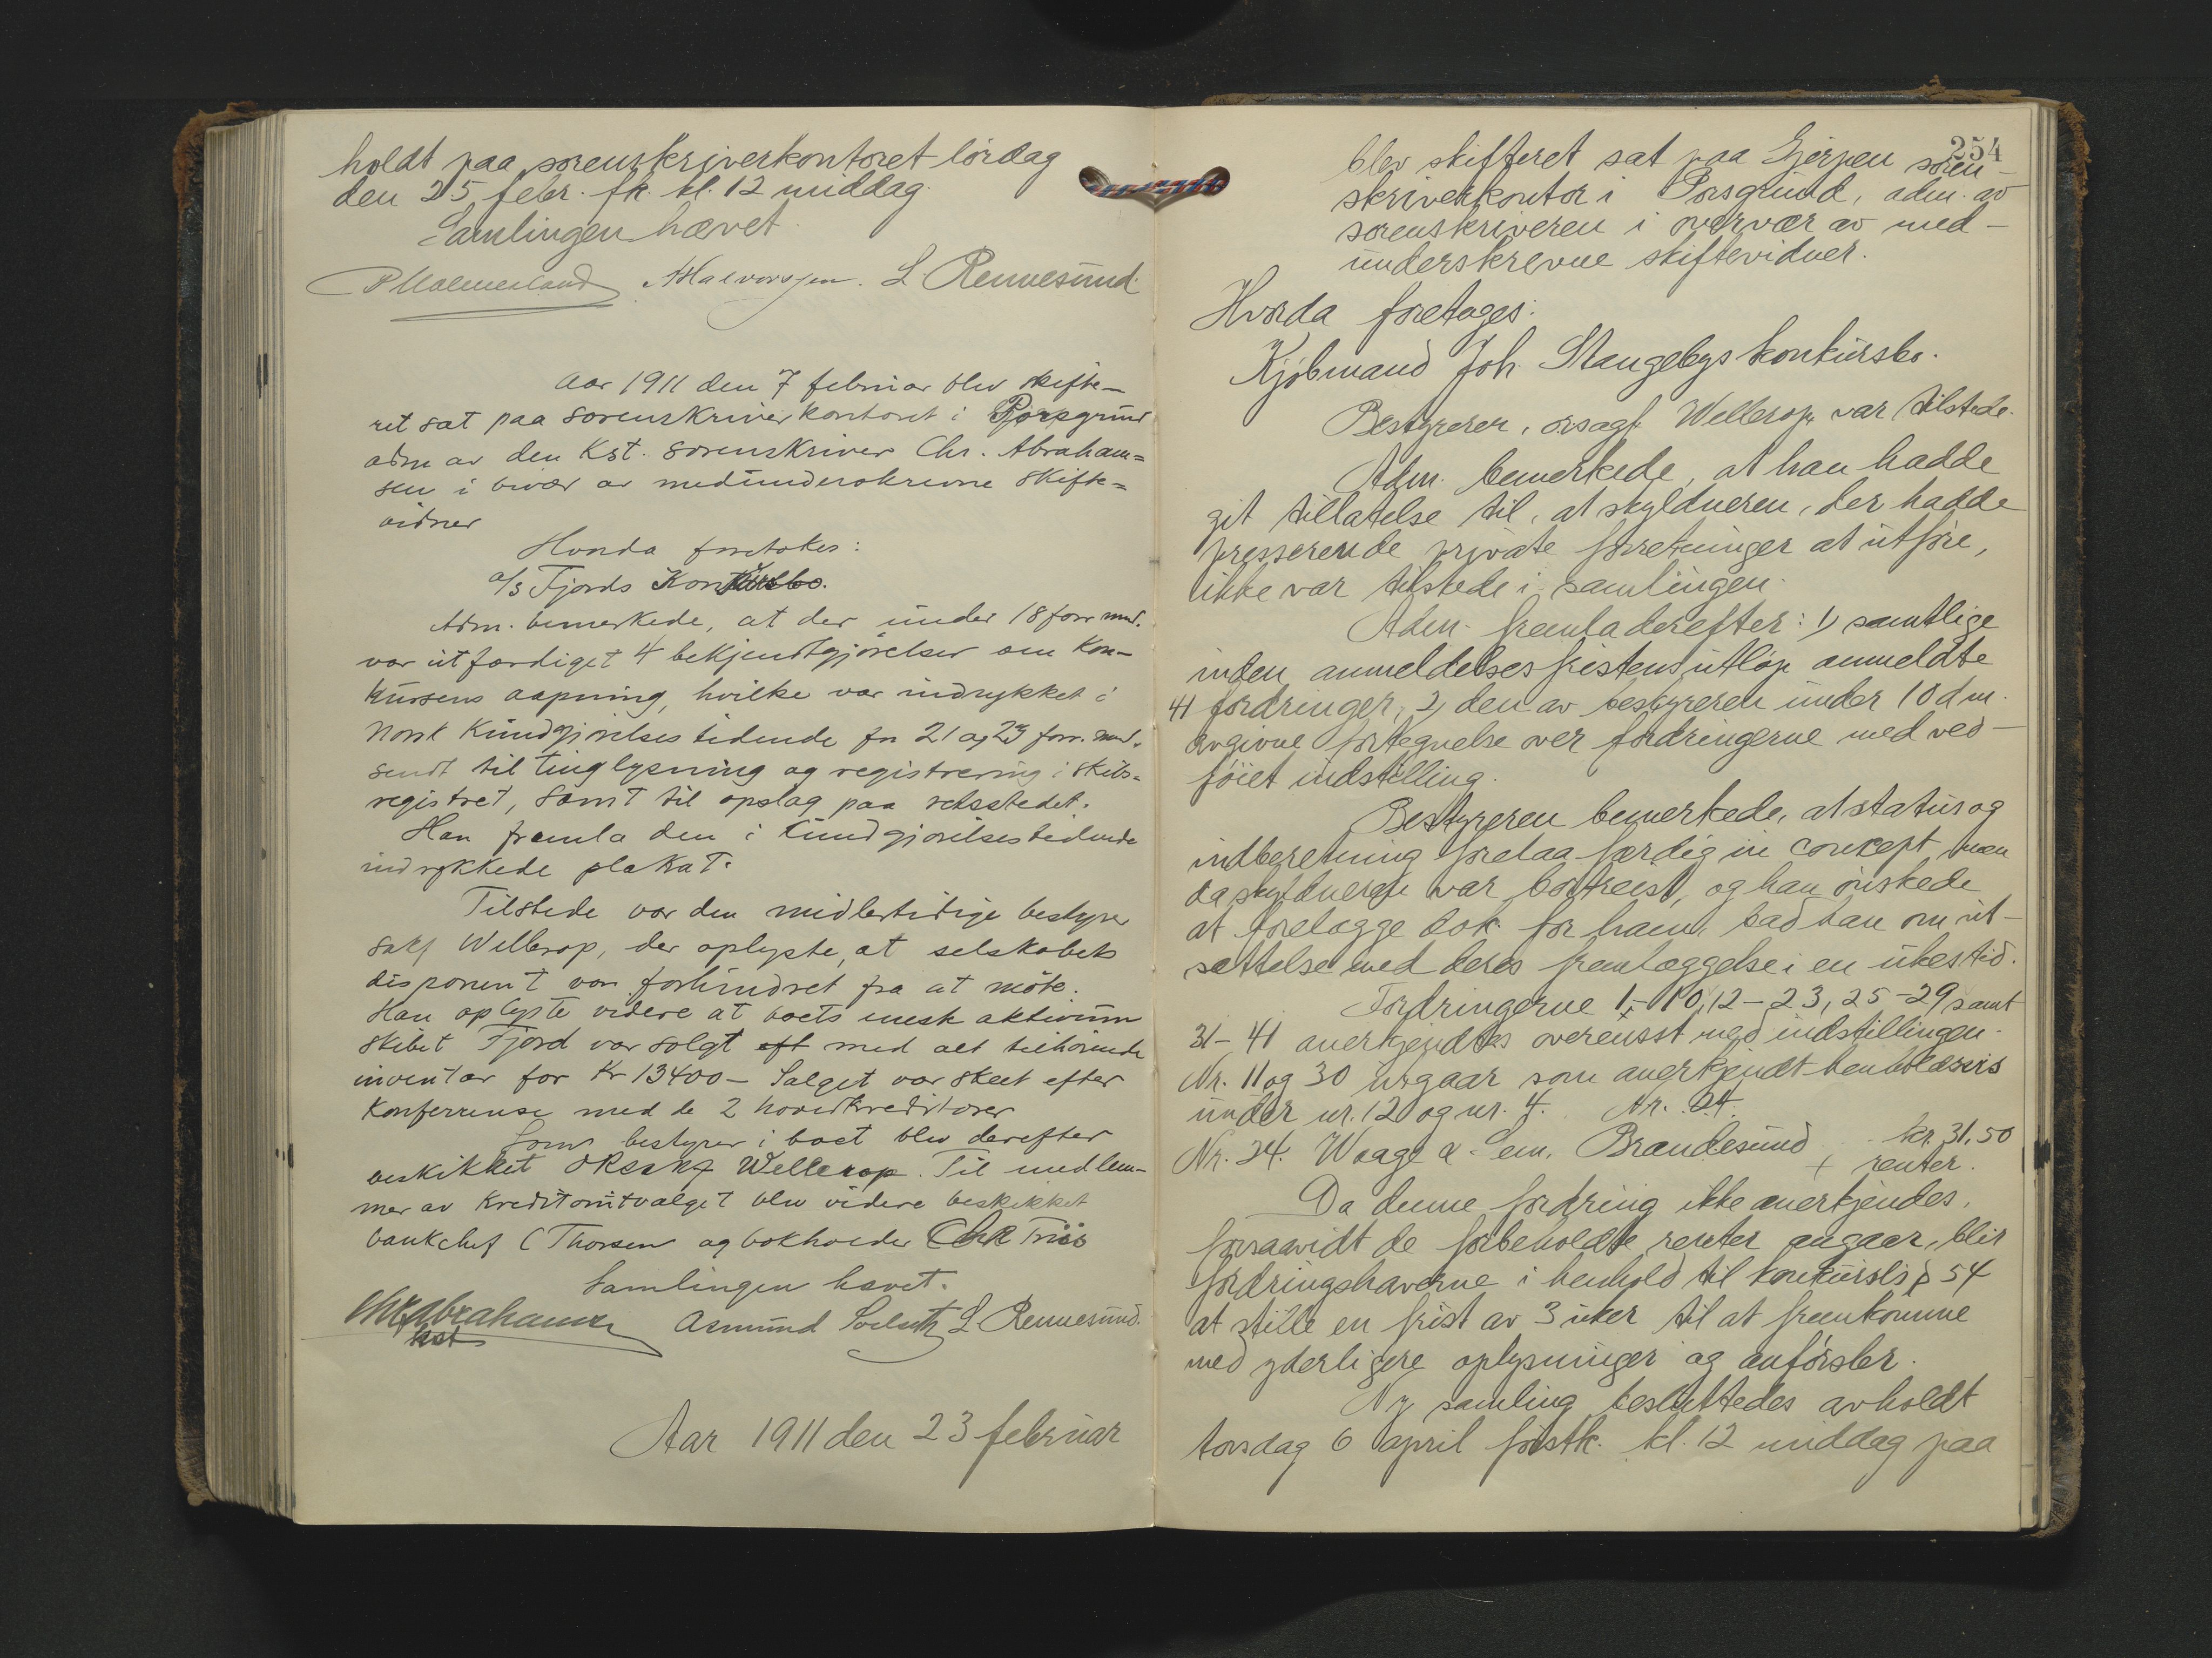 holdt paa sorenskriverkontoret lördag
den 25 febr. fk. kl. 12 middag.
Samlingen hævet.
Halvorsen. L Rennesund.
Aar 1911 den 7 februar blev skifte-
ret sat paa sorenskriverkontoret i Porsgrund
adm av den Kst. sorenskriver Chr. Abraham=
sen i overvær av medunderskrevne skifte=
vidner
Hvorda foretokes:
a/s Fjords Konkursbo.
Adm. bemerkede, at der under 18 forr. md.
var utfærdiget 4 bekjendtgjörelser om Kon-
kursens aapning, hvilke var indrykket i
Norsk Kundgjörelsestidende for 21 og 23 forr. md.
sendt til tinglysning og registrering i skibs=
registret, samt til opslag paa retsstedet.
Han fremla den i Kundgjörelsestidende
indrykkede plakat.
Tilstede var den midlertidige bestyrer
sakf Wellerop, der oplyste, at selskabets
disponent var forhindret fra at möte.
Han oplyste videre at boets enesk aktivum
skibet Fjord var solgt med alt tilhörende
inventar for Kr 13400 – Salget var skeet efter
Konferense med de 2 hovedkreditorer
Som bestyrer i boet blev derefter
beskikket Wellerop. Til medlem-
mer av Kreditorutvalget blev videre beskikket
bankchef C Thorsen og bokholder Chr
Samlingen hævet.
Chr Abrahamsen Asmund L Rennesund.
kst
Aar 1911 den 23 februar
254
blev skifteret sat paa Gjerpen soren-
skriverkontor i Porsgrund, adm. av
sorenskriveren i overvær av med-
underskrevne skiftevidner.
Hvorda foretoges:
Kjöbmand Joh. Stangebys konkursbo.
Bestyreren, orsagf. Wellerop var tilstede.
Adm. bemerkede, at han hadde
git tillatelse til, at skyldneren, der hadde
presserende private forretninger at utföre,
ikke var tilstede i samlingen.
Adm. fremla derefter: 1) samtlige
inden anmeldelsesfristens utlöp anmeldte
41 fordringer, 2) den av bestyreren under 10 d m.
avgivne fortegnelse over fordringerne med ved-
föiet indstilling.
Bestyreren bemerkede, at status og
indberetning forelaa færdig in concept, men
da skyldneren var bortreist, og han önskede
at forelægge dok. for ham, bad han om ut-
sættelse med deres fremlæggelse i en ukes tid.
Fordringerne 1-10, 12-23, 25-29 samt
31-41 anerkjendtes overensst med indstillingen.
Nr. 11 og 30 utgaar som anerkjendt henholdsvis
under nr. 12 og nr. 4. Nr. 24.
Nr. 24. Waage a Sem, Brandesund .. kr. 31,50
+ renter.
Da denne fordring ikke anerkjendes,
forsaavidt de forbeholdte renter angaar, blir
fordringshaverne i henhold til konkursl's § 54
at stille en frist av 3 uker til at fremkomme
med yderligere oplysninger og anförsler.
Ny samling besluttedes avholdt
torsdag 6 april förstk. kl. 12 middag paa